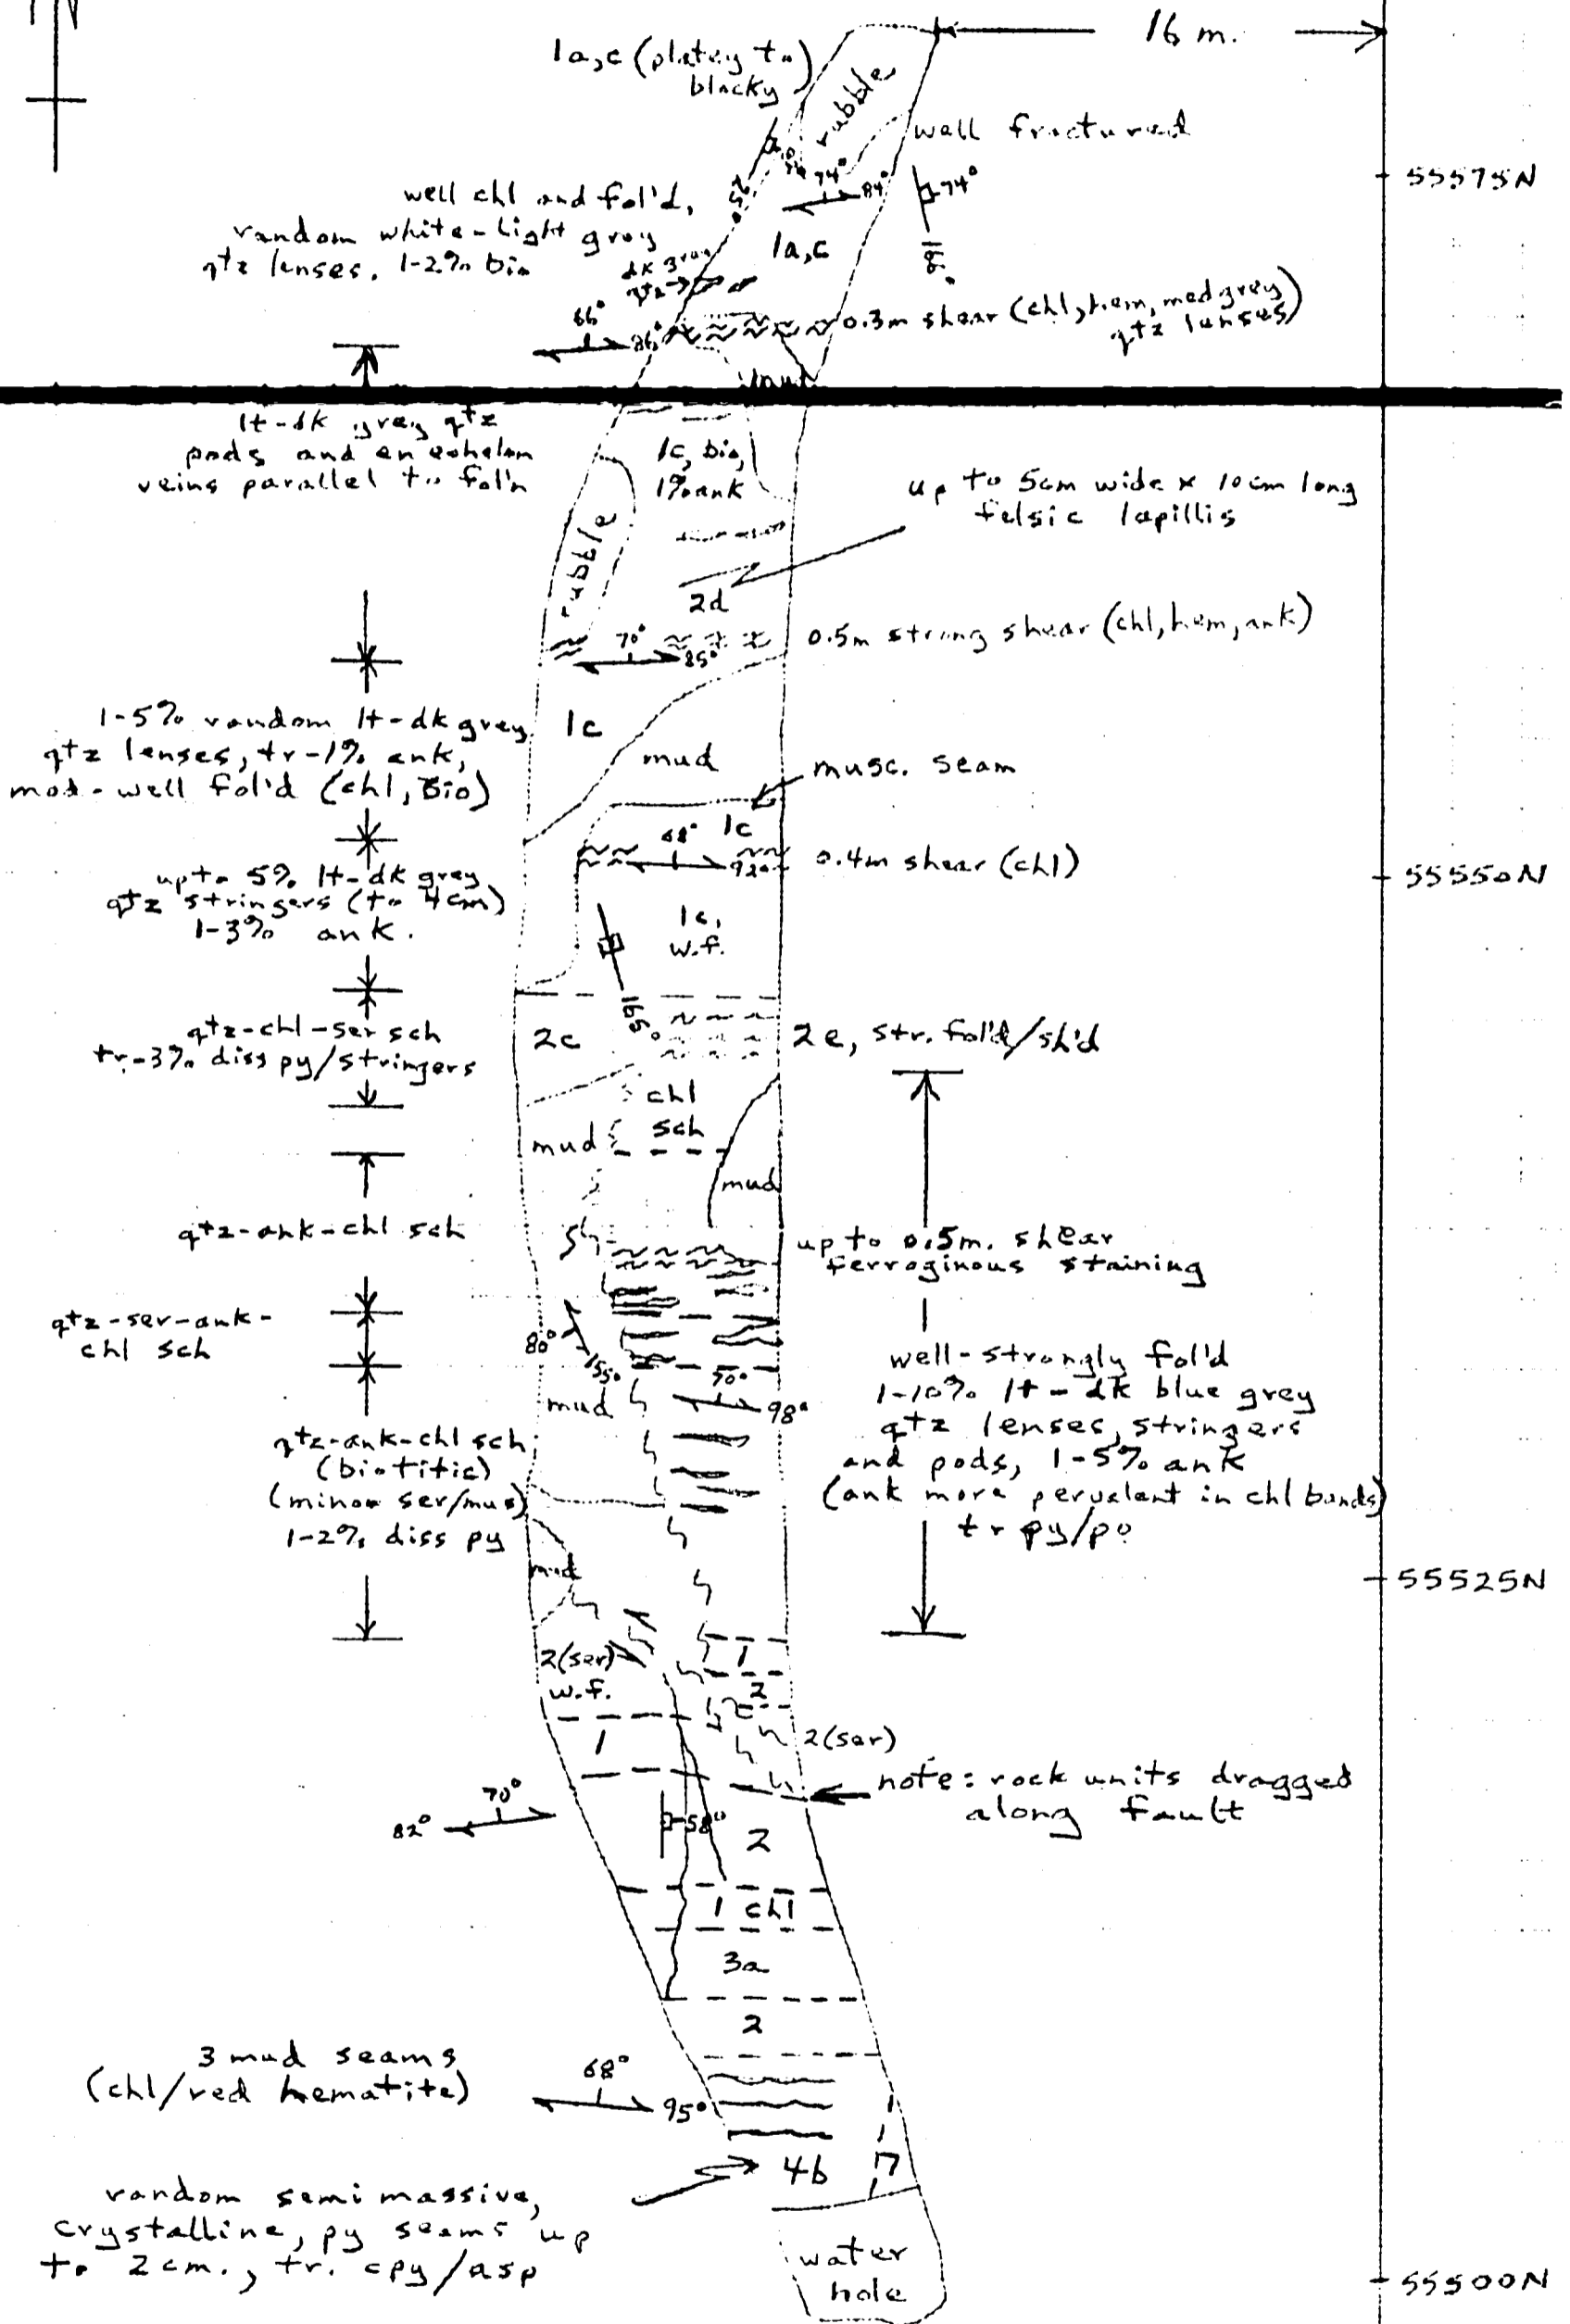 N
16 m.
1a,c (platey to
blocky
rubble
well fractured
74°
84°
74°
55575N
well chl and fol'd,
random white-light grey
qtz lenses. 1-2% bio
dk grey
qtz
1a,c
0.3m shear (chl, hem, med grey
qtz lenses)
66°
86°
mud
lt-dk grey qtz
pods and en echelon
veins parallel to fol'n
1c, bio,
1% ank
up to 5cm wide x 10cm long
felsic lapillis
rubble
2d
70°
85°
0.5m strong shear (chl, hem, ank)
1-5% random lt-dk grey
qtz lenses, tr-1% ank,
mod-well fol'd (chl, bio)
1c
mud
musc. seam
68°
1c
92°
0.4m shear (chl)
55550N
up to 5% lt-dk grey
qtz stringers (to 4cm)
1-3% ank.
1c,
w.f.
165°
qtz-chl-ser sch
tr-3% diss py/stringers
2c
2e, str. fol'd/sh'd
chl
sch
mud
mud
qtz-ank-chl sch
up to 0.5m. shear
ferroginous staining
qtz-ser-ank-
chl sch
80°
155°
50°
98°
mud
well-strongly fol'd
1-10% lt-dk blue grey
qtz lenses, stringers
and pods, 1-5% ank
(ank more pervalent in chl bands)
tr py/po
qtz-ank-chl sch
(biotitic)
(minor ser/mus)
1-2% diss py
mud
55525N
2(ser)
w.f.
1
2
1
2(ser)
note: rock units dragged
along fault
70°
82°
58°
2
1 chl
3a
2
3 mud seams
(chl/red hematite)
68°
95°
4b
random semi massive,
crystalline, py seams up
to 2cm., tr. cpy/asp
water
hole
55500N